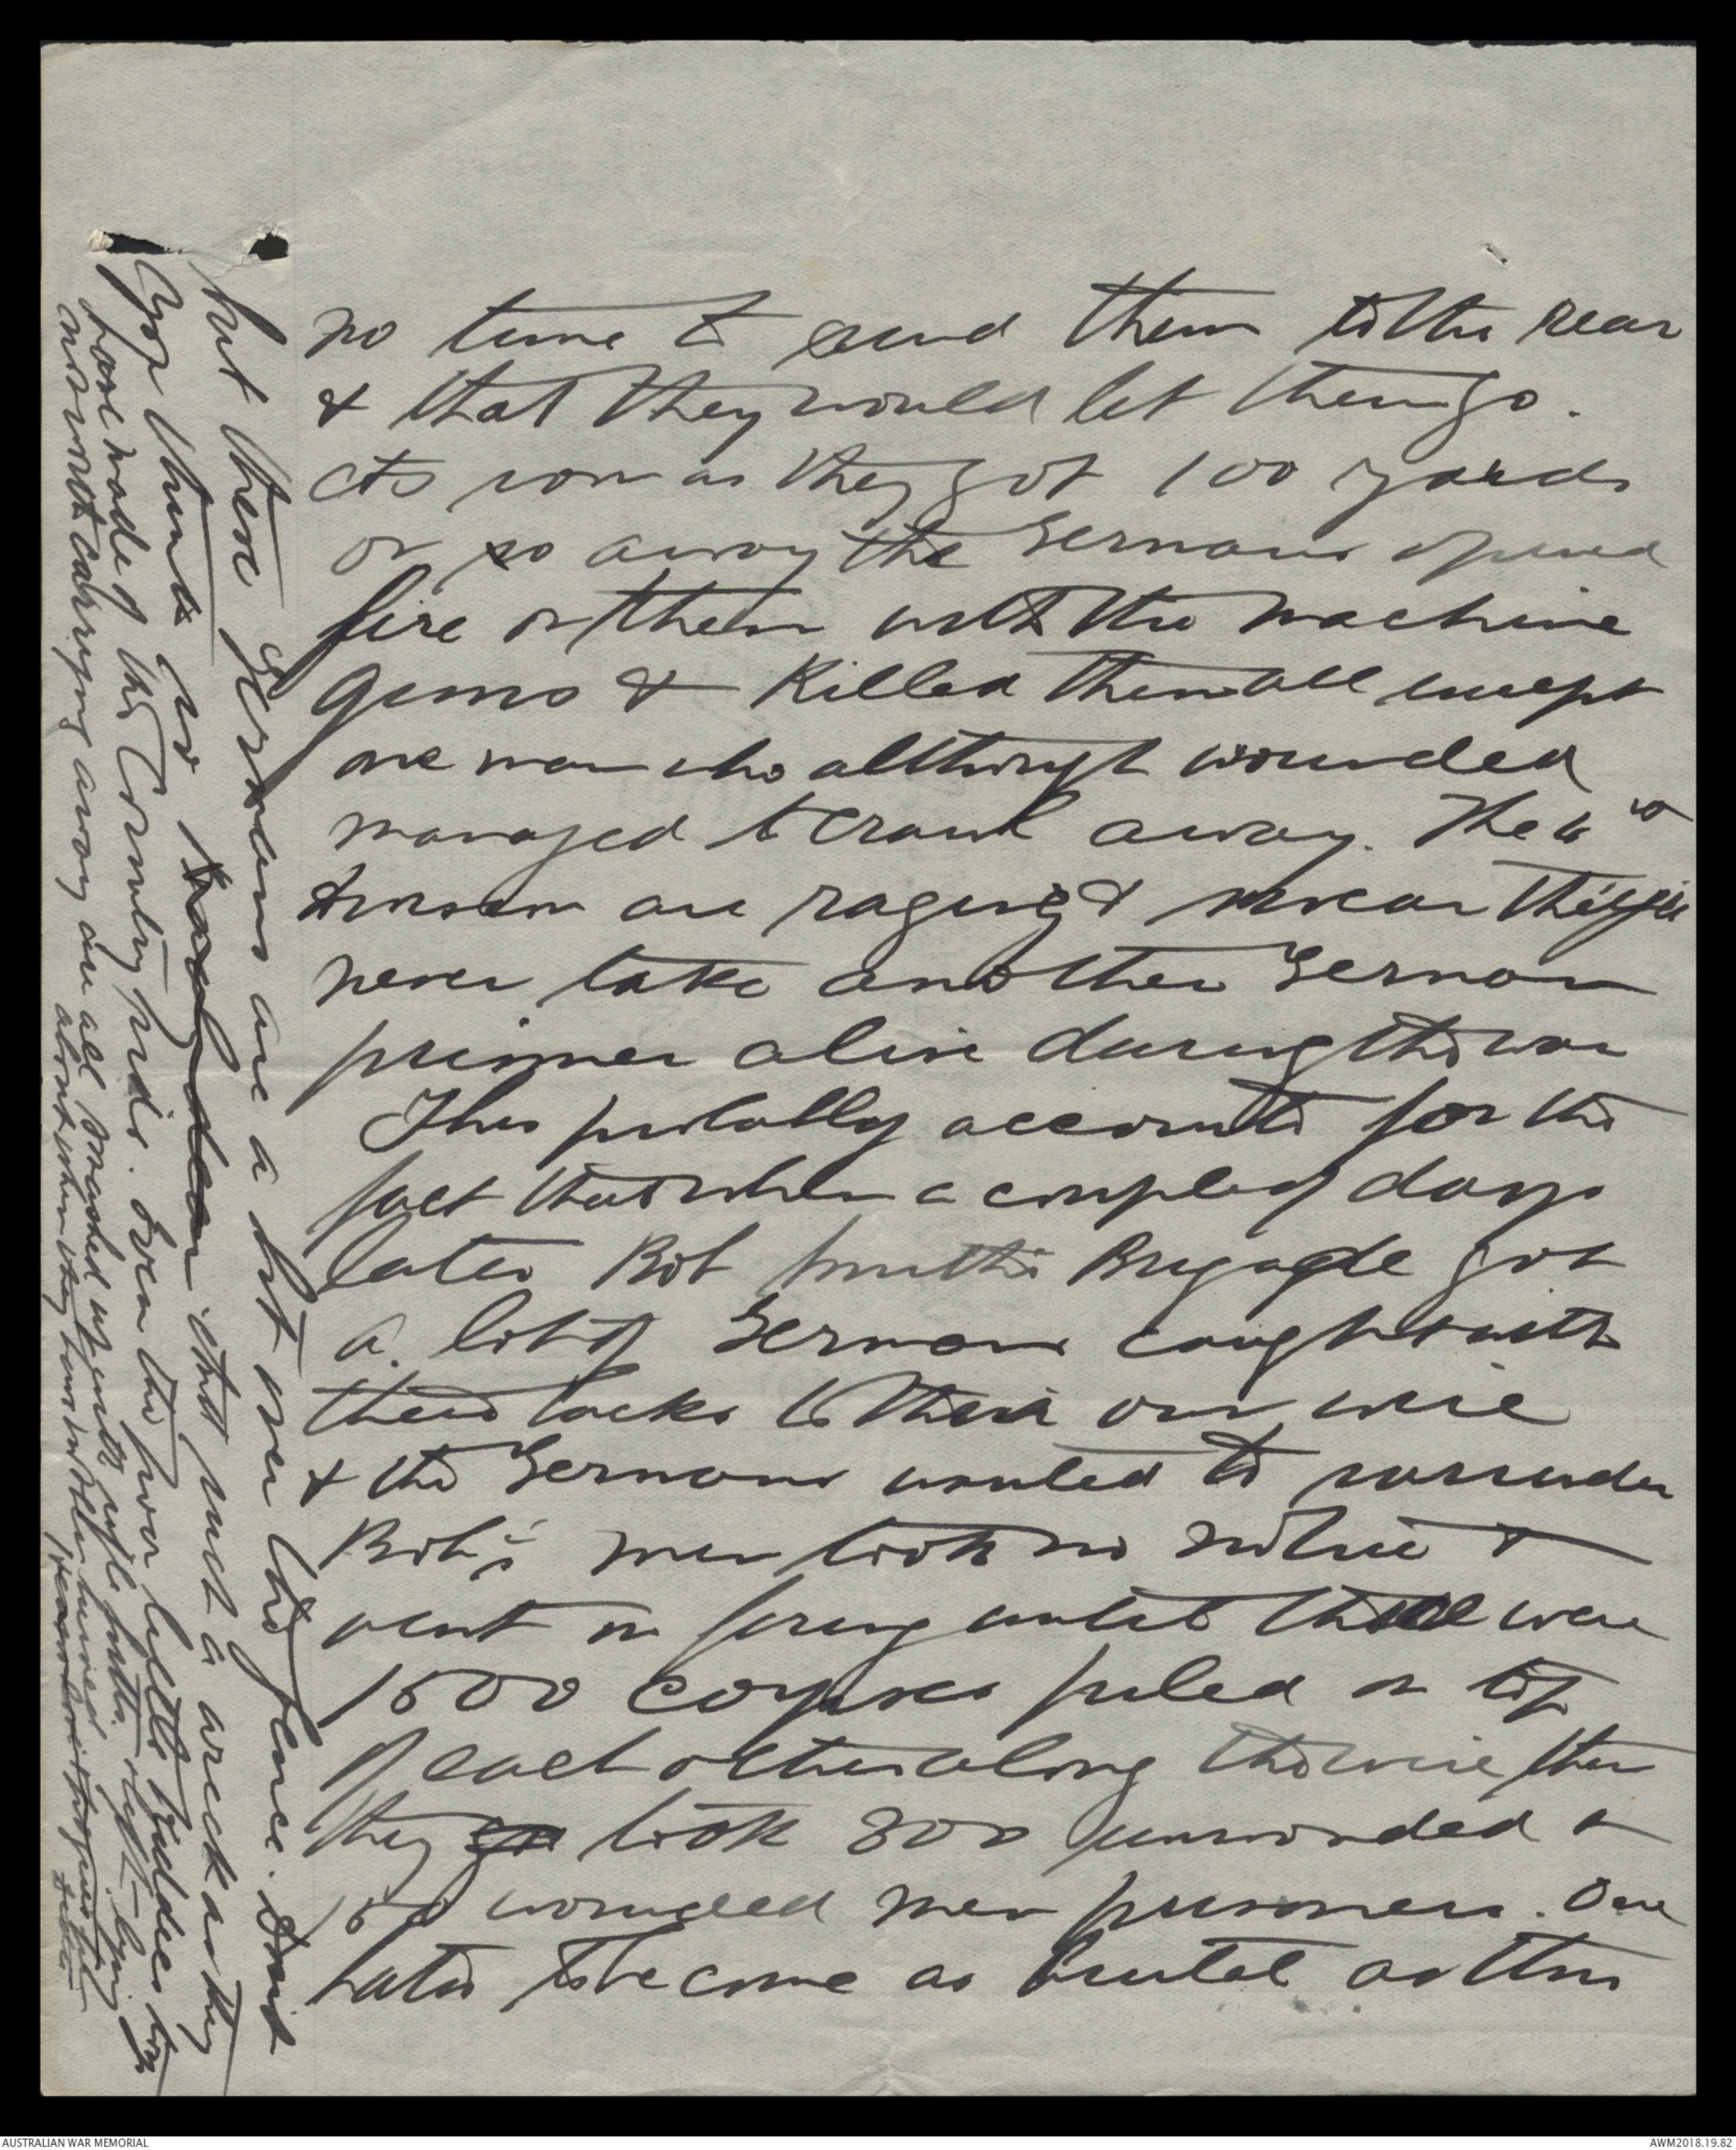 no time to send them to the rear
& that they would let them go.
As soon as they got 100 yards
or so away the Germans opened
fire on them with the machine
guns & killed them all except
one man who although wounded
managed to crawl away. The
Division are raging & swear they'll
never take another German
prisoner alive during the war
This probably accounts for the
fact that when a couple of days
later Bob Smith's Brigade got
a lot of Germans caught with
their backs to their own wire
& the Germans wanted to surrender
Bob's men took no notice &
went on firing until there were
1500 corpses piled on top
of each other along the wire then
they took 800 unwounded &
150 wounded men prisoners. One
hates to become as brutal as this
but these Germans are a bit over the fence. And
you think no that such a wreck as they
have made of this Country side. Even the poor little
not worth carrying away are all smashed up with rifle butts
about when they